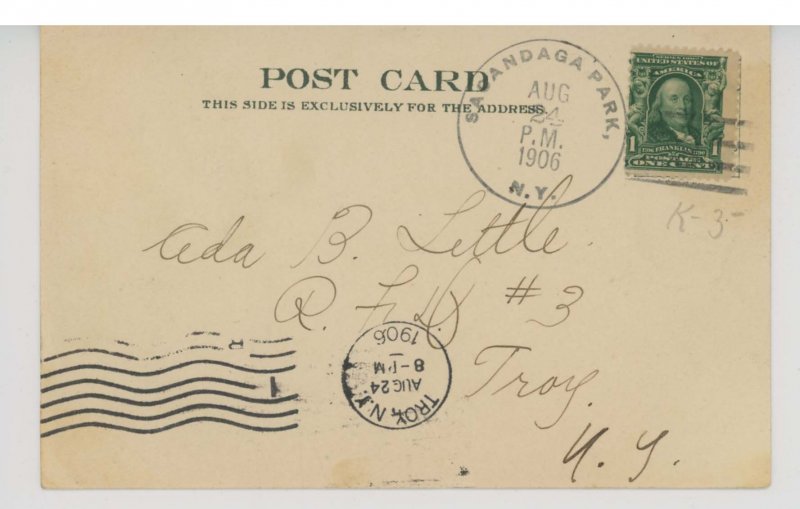 POST CARD
THIS SIDE IS EXCLUSIVELY FOR THE ADDRESS.
SACANDAGA PARK,
AUG
24
P.M.
1906
N.Y.
UNITED STATES OF
AMERICA
1 FRANKLIN 1
POSTAGE
ONE CENT
K-3-
Ada B. Little.
R. F. D. #3
Troy.
N. Y.
TROY, N.Y.
AUG 24
8-PM
1906
1